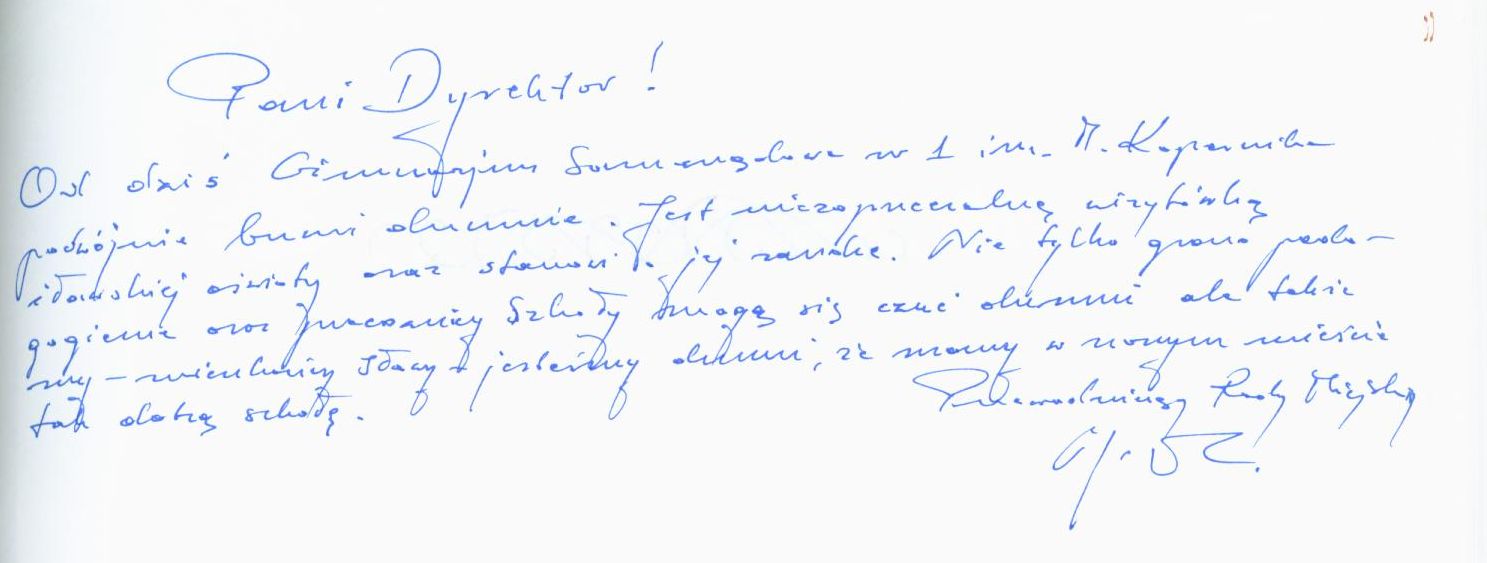 Pani Dyrektor!
Od dziś Gimnazjum Samorządowe nr 1 im. M. Kopernika
podwójnie brzmi dumnie. Jest niezaprzeczalną wizytówką
iławskiej oświaty oraz stanowi jej markę. Nie tylko grono peda-
gogiczne oraz pracownicy Szkoły mogą się czuć dumni ale także
my - mieszkańcy Iławy - jesteśmy dumni, że mamy w naszym mieście
tak dobrą szkołę.
Przewodniczący Rady Miejskiej